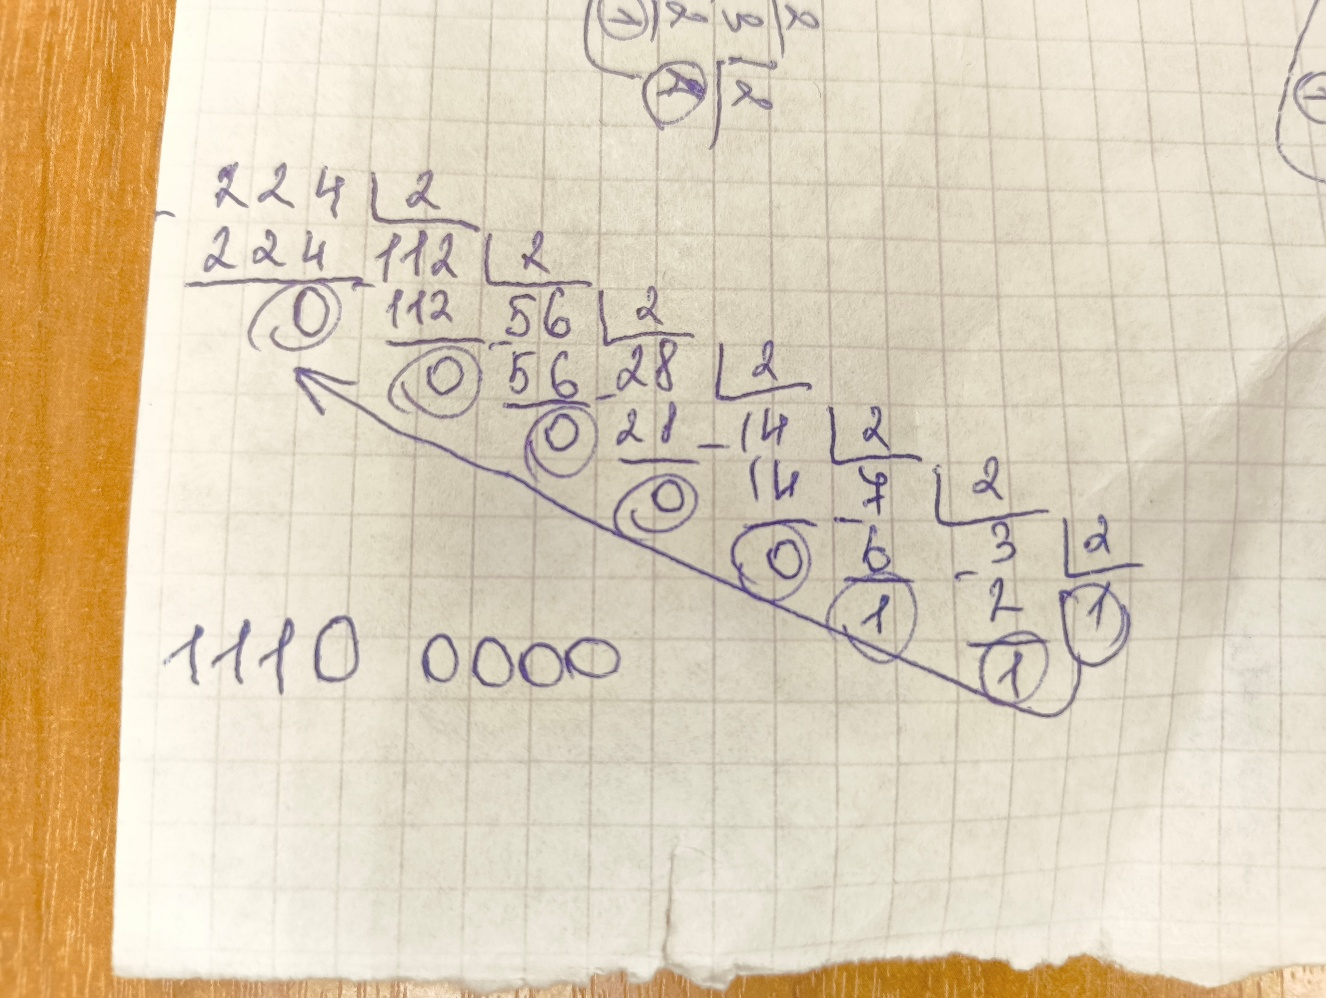 224 2
224 112 2
0 112 56 2
0 56 28 2
0 28 14 2
0 14 7 2
0 6 3 2
1 2 1
1
1110 0000